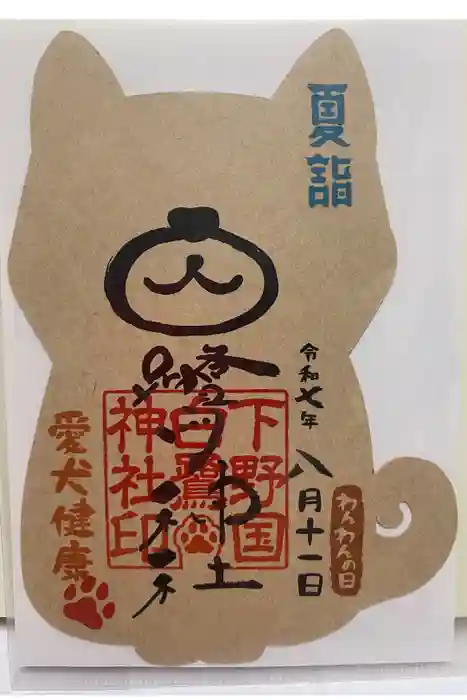 夏詣
令和七年
八月十一日
わんわんの日
下野国
白鷺
神社印
愛犬健康